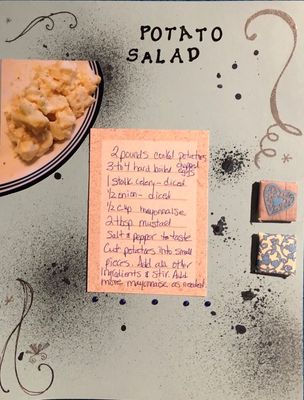 POTATO
SALAD
2 pounds cooked potatoes
3 to 4 hard boiled chopped eggs
1 stalk celery - diced
1/2 onion - diced
1/2 cup mayonnaise
2 tbsp mustard
Salt & pepper to taste
Cut potatoes into small
pieces. Add all other
ingredients & stir. Add
more mayonnaise as needed